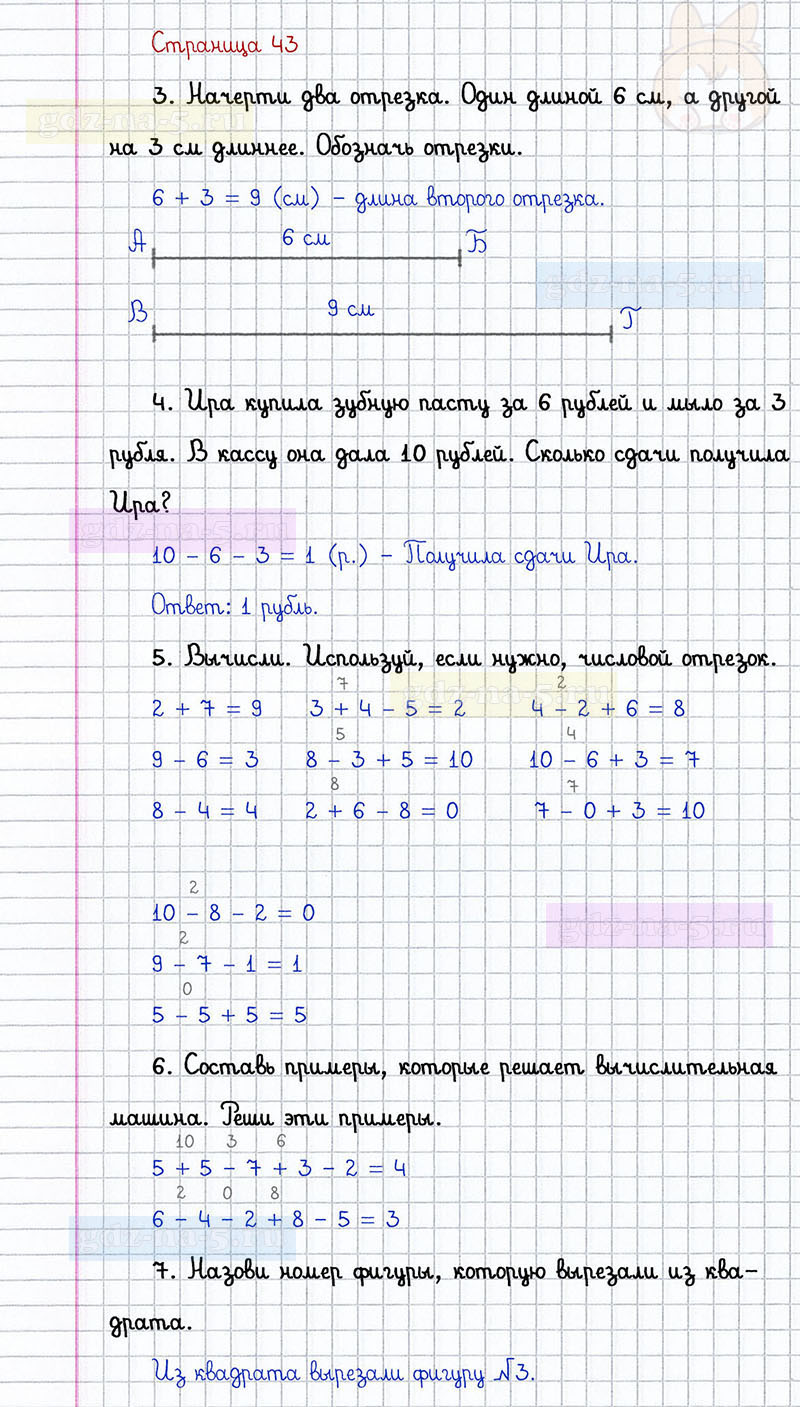 Страница 43
3. Начерти два отрезка. Один длиной 6 см, а другой
gdz-na-5.ru
на 3 см длиннее. Обозначь отрезки.
6 + 3 = 9 (см) – длина второго отрезка.
А 6 см Б
gdz-na-5.ru
В 9 см Г
4. Ира купила зубную пасту за 6 рублей и мыло за 3
рубля. В кассу она дала 10 рублей. Сколько сдачи получила
Ира?
gdz-na-5.ru
10 – 6 – 3 = 1 (р.) – Получила сдачи Ира.
Ответ: 1 рубль.
5. Вычисли. Используй, если нужно, числовой отрезок.
7 2
gdz-na-5.ru
2 + 7 = 9 3 + 4 – 5 = 2 4 – 2 + 6 = 8
5 4
9 – 6 = 3 8 – 3 + 5 = 10 10 – 6 + 3 = 7
8 7
8 – 4 = 4 2 + 6 – 8 = 0 7 – 0 + 3 = 10
2
10 – 8 – 2 = 0
gdz-na-5.ru
2
9 – 7 – 1 = 1
0
5 – 5 + 5 = 5
6. Составь примеры, которые решает вычислительная
машина. Реши эти примеры.
10 3 6
5 + 5 – 7 + 3 – 2 = 4
2 0 8
6 – 4 – 2 + 8 – 5 = 3
gdz-na-5.ru
7. Назови номер фигуры, которую вырезали из ква–
драта.
Из квадрата вырезали фигуру №3.